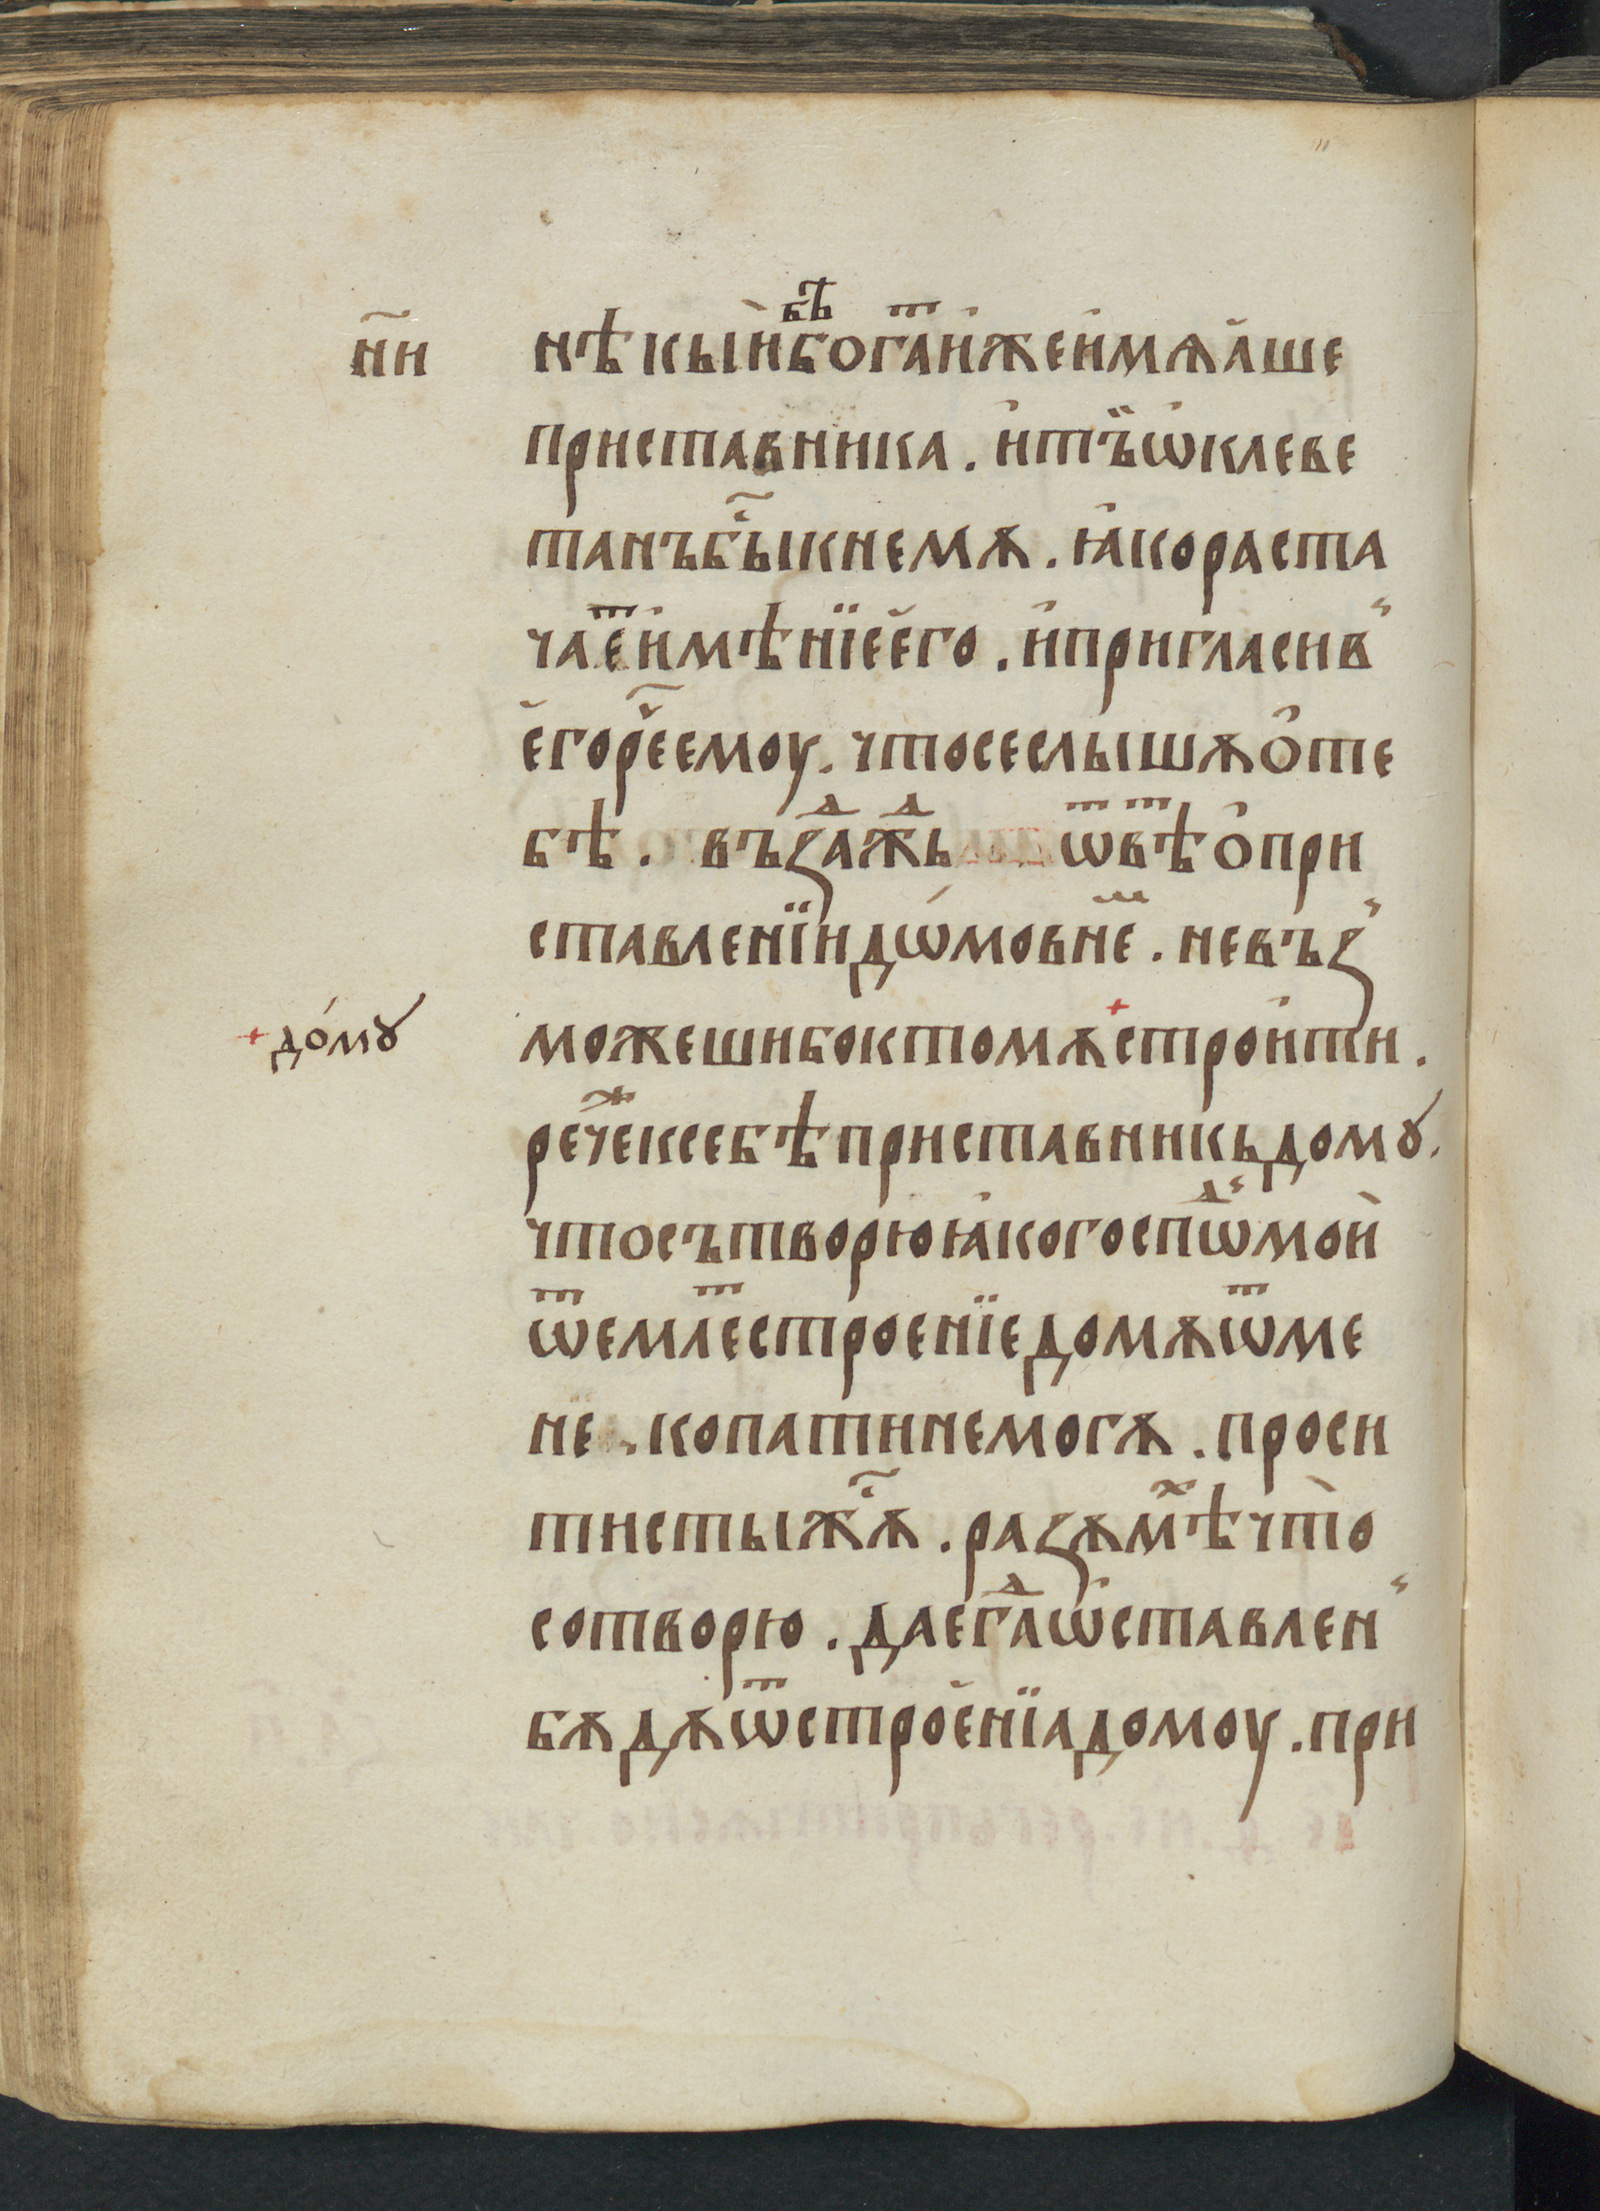 бѣ
н҃и нѣкыи̇богаⷮи̇жеи̇мѫа̇ше
приставника . и̇тъ̈ѡ̇клеве
танъбы҃кнемѫ . ꙗ̇кораста
чаеⷮи̇мѣнїеего . и̇пригласив
е̇горе҃емоу . чтосеслышѫо̇те
бѣ . въꙁаⷣжⷣь ѿвѣⷮо̇при
ставленїидѡ́мовнеⷨ . невъꙁ
+ до́мꙋ можешибоктомѫ+строи̇ти .
речеⷤксебѣприставникьдомꙋ .
чтосътворюꙗ̇когоспѡⷣмои̇
ѿемлеⷮстроенїедомѫѿме
не . копатинемогѫ . проси
тистыжⷭ҇ѫ . раꙁѫмѣⷯчто̀
сотворю . даегаⷣѡ̇ставлен
бѫдѫѿстрое̇нїадомоу . при